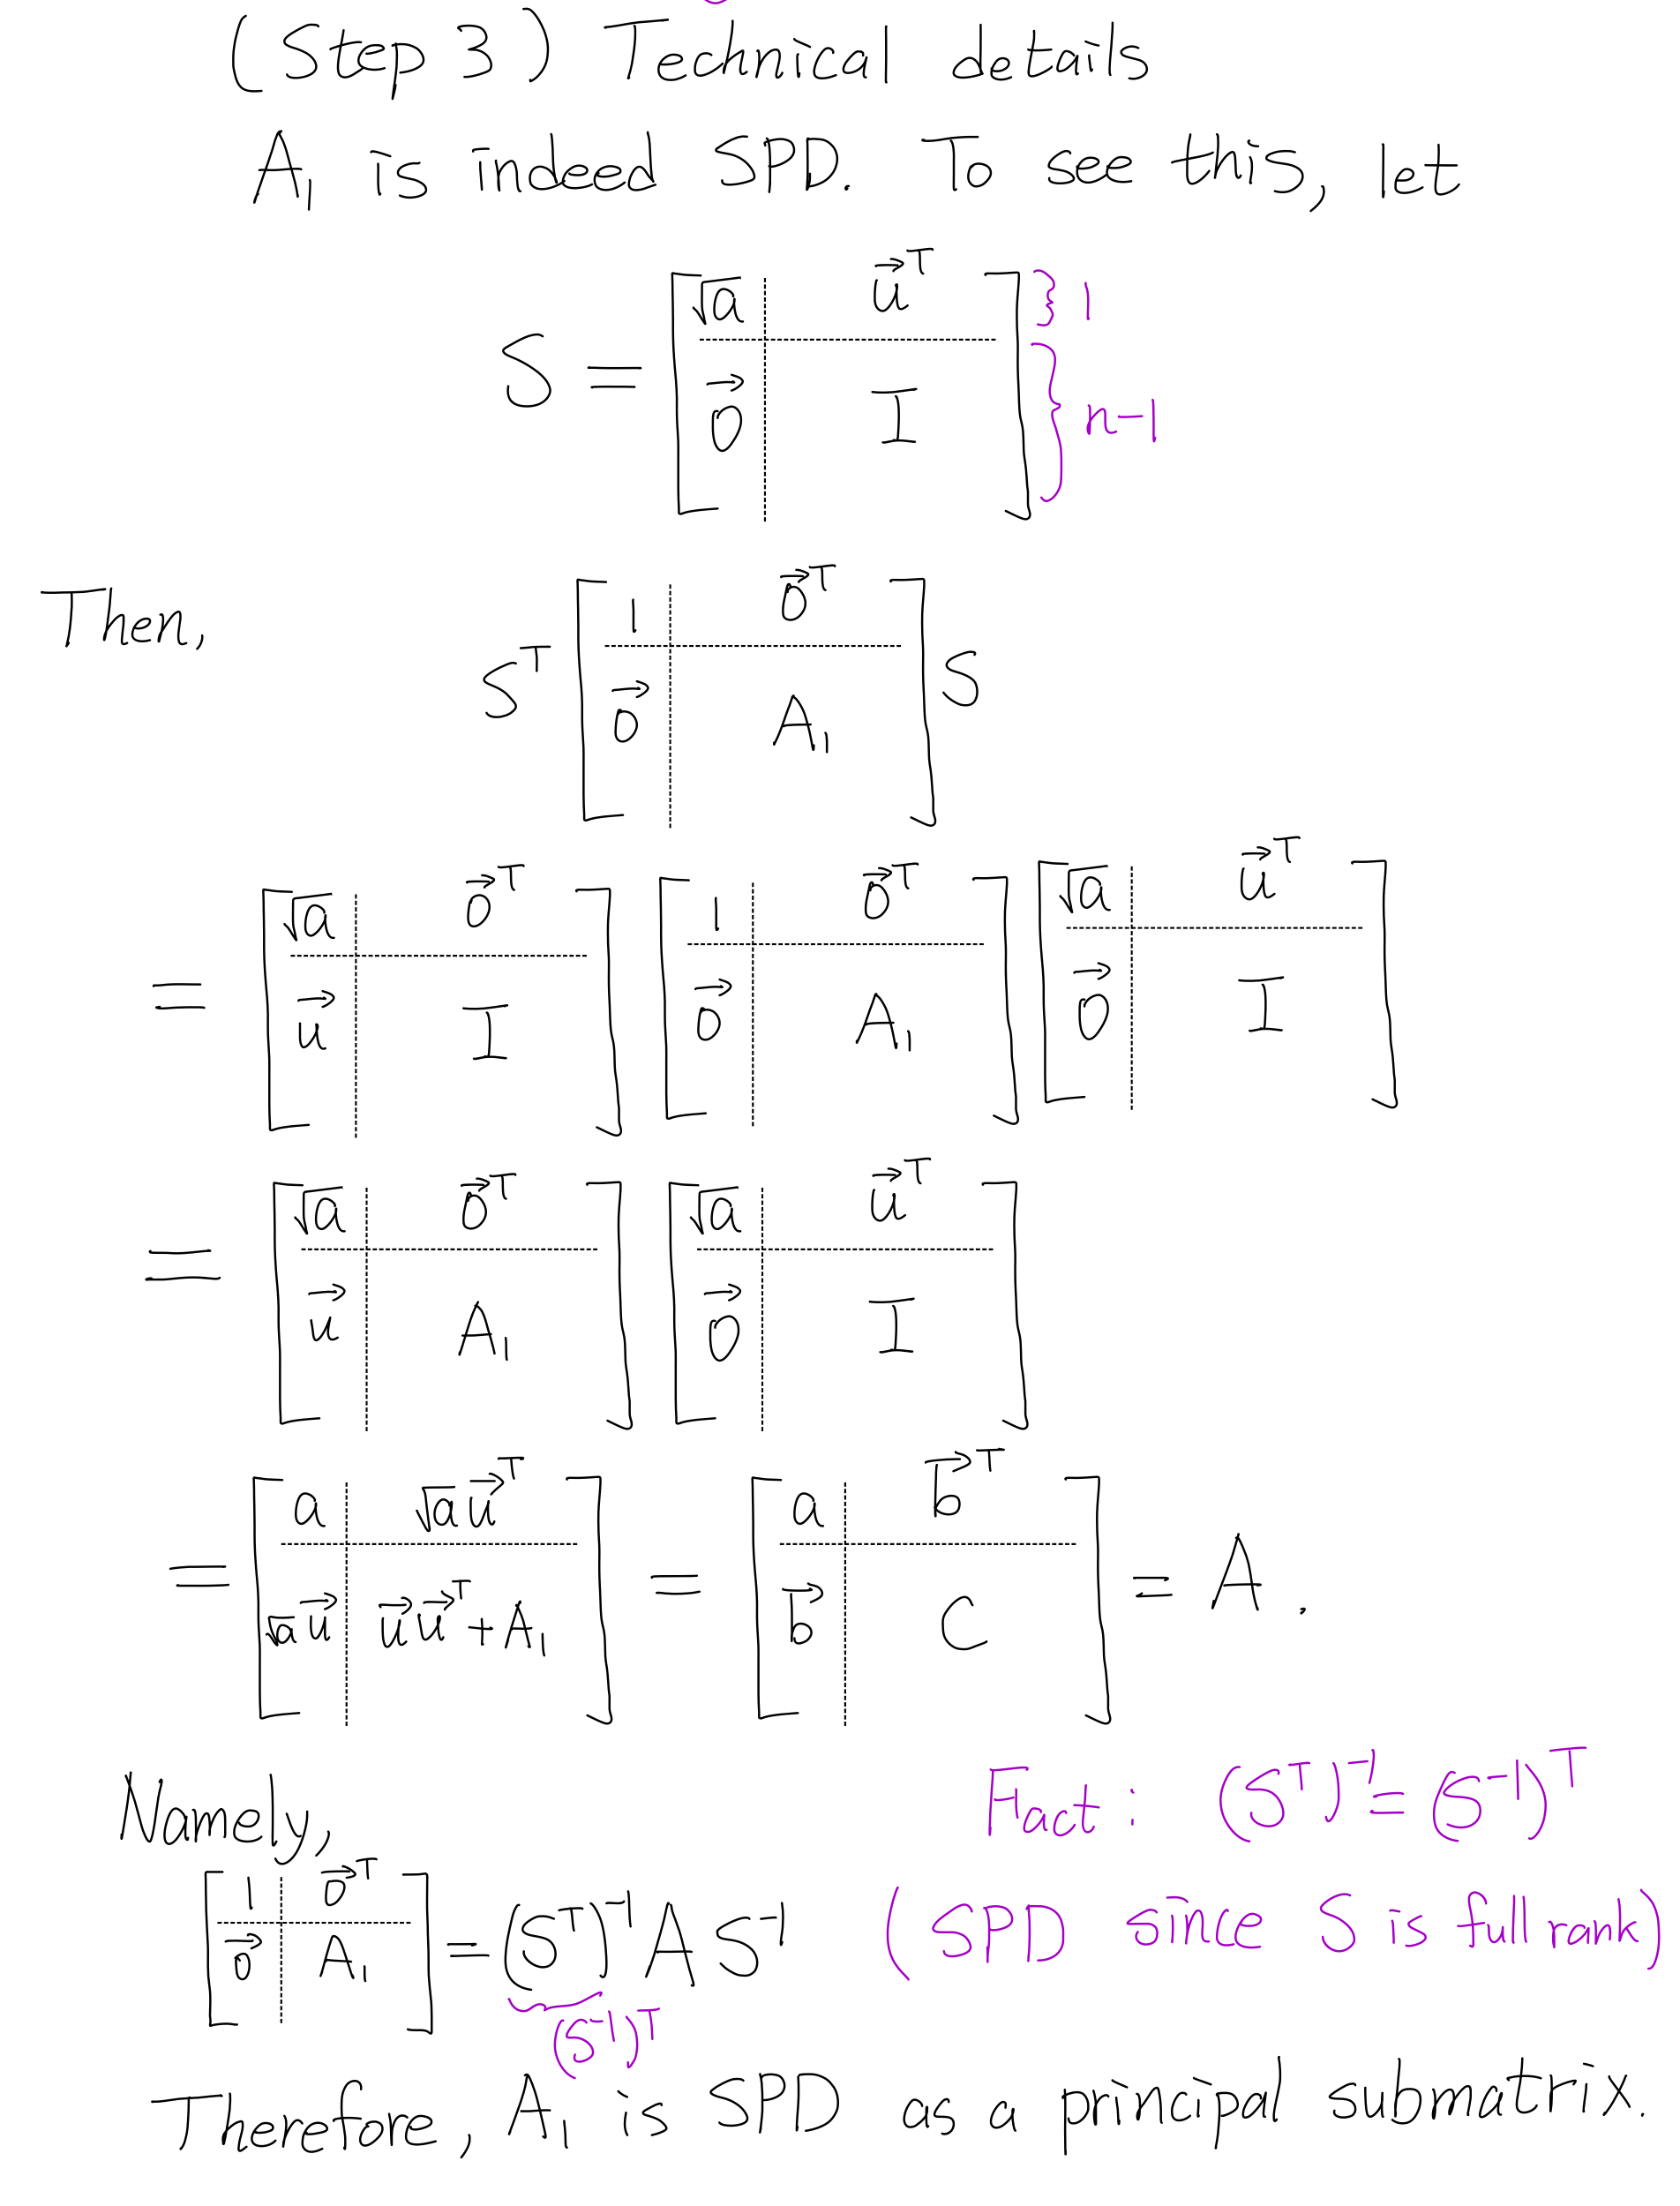 (Step 3) Technical details
A₁ is indeed SPD. To see this, let
S = [ √a u⃗ᵀ ; 0⃗ I ] } 1 } n-1
Then,
Sᵀ [ 1 0⃗ᵀ ; 0⃗ A₁ ] S
= [ √a 0⃗ᵀ ; u⃗ I ] [ 1 0⃗ᵀ ; 0⃗ A₁ ] [ √a u⃗ᵀ ; 0⃗ I ]
= [ √a 0⃗ᵀ ; u⃗ A₁ ] [ √a u⃗ᵀ ; 0⃗ I ]
= [ a √a u⃗ᵀ ; √a u⃗ u⃗u⃗ᵀ+A₁ ] = [ a b⃗ᵀ ; b⃗ C ] = A .
Namely, Fact : (Sᵀ)⁻¹ = (S⁻¹)ᵀ
[ 1 0⃗ᵀ ; 0⃗ A₁ ] = (Sᵀ)⁻¹ A S⁻¹ (SPD since S is full rank)
(S⁻¹)ᵀ
Therefore, A₁ is SPD as a principal submatrix.